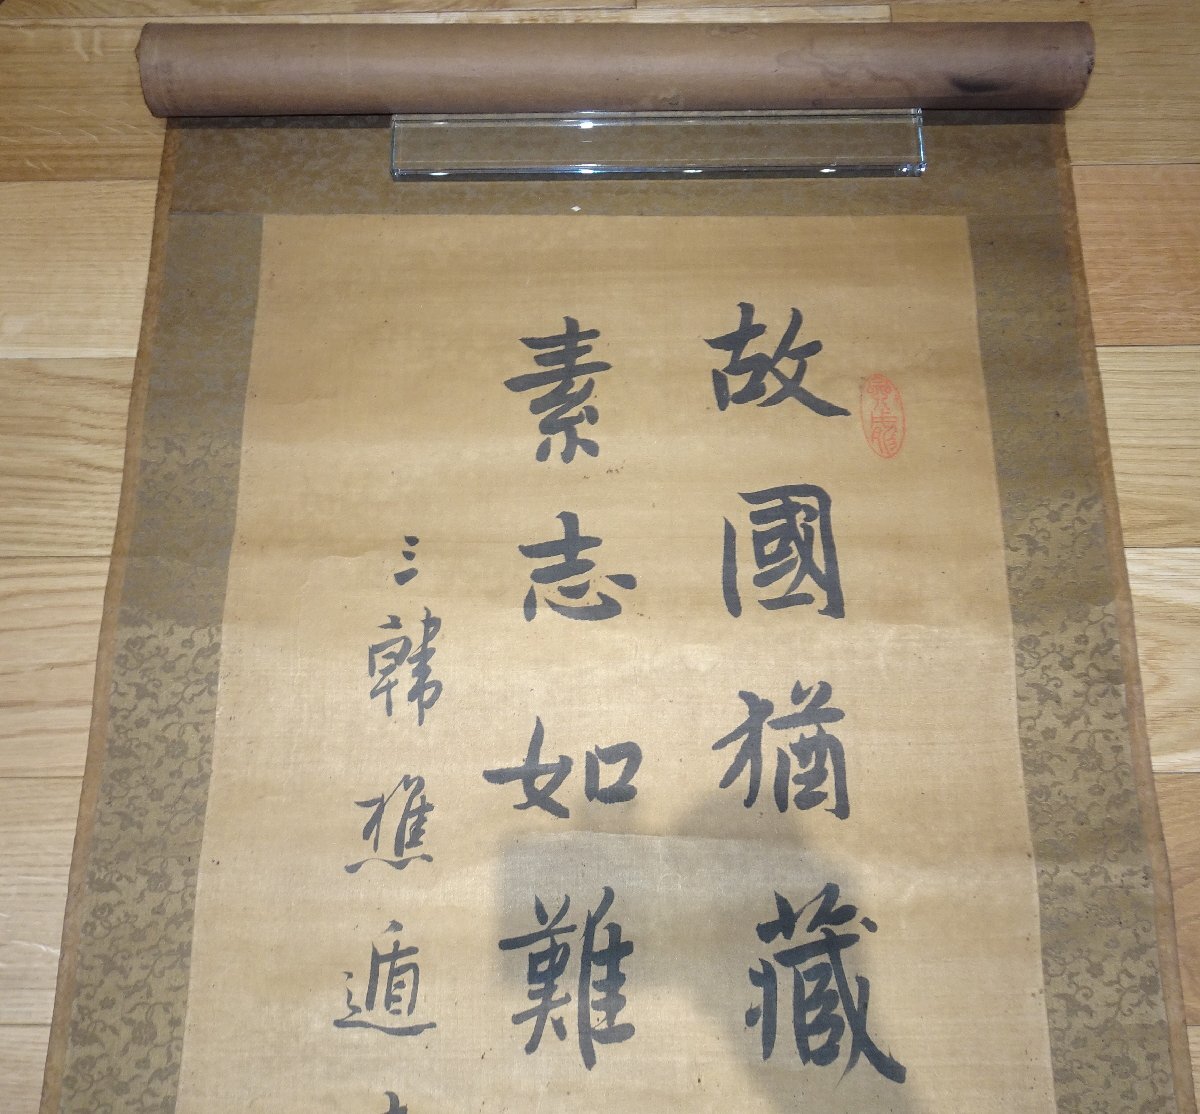 故國猶藏
素志如難
三韓樵遁